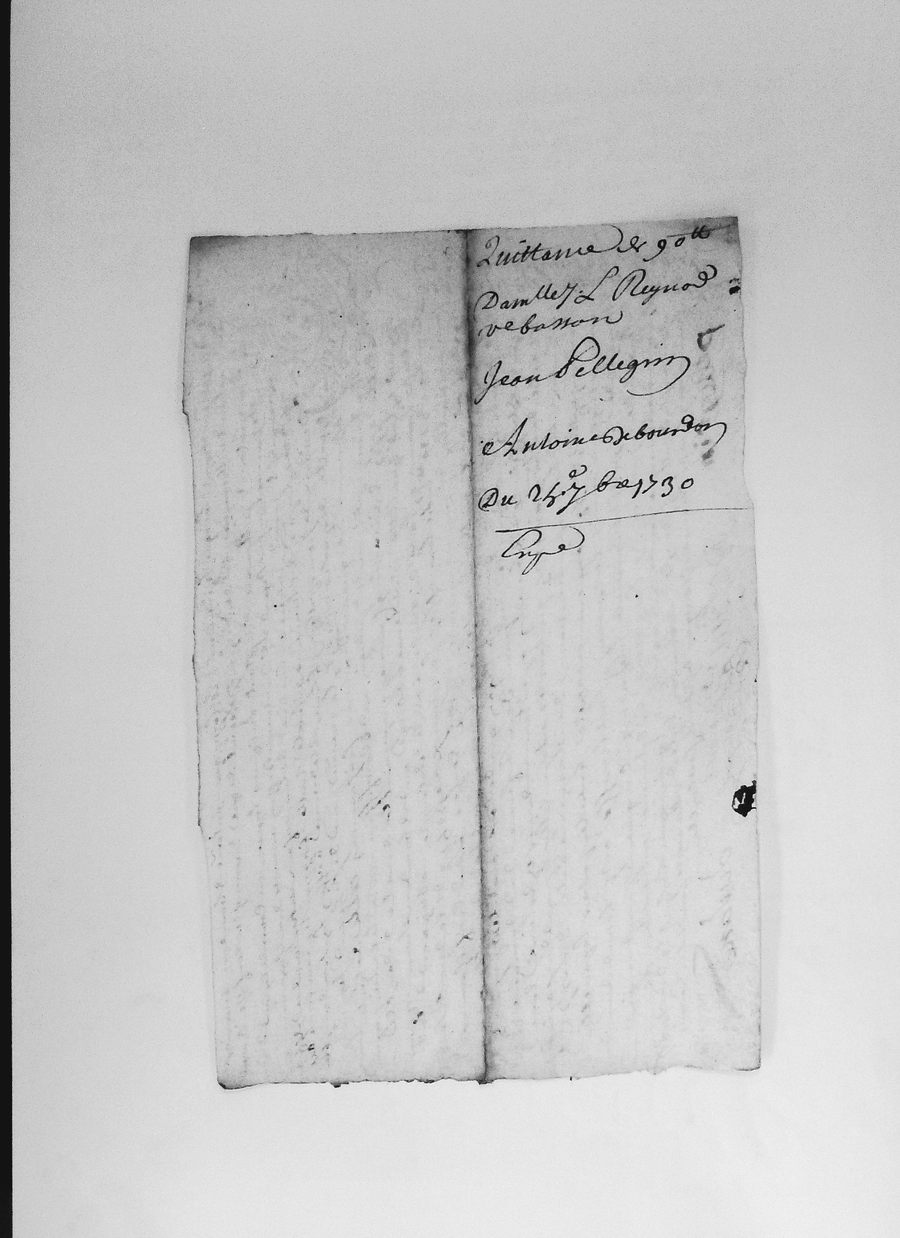 Quittance de 90 tt
Dam lle J. L Reynod
ve basson
Jean Pellegrin
Antoine Debourdon
Du 25e 7bre 1730